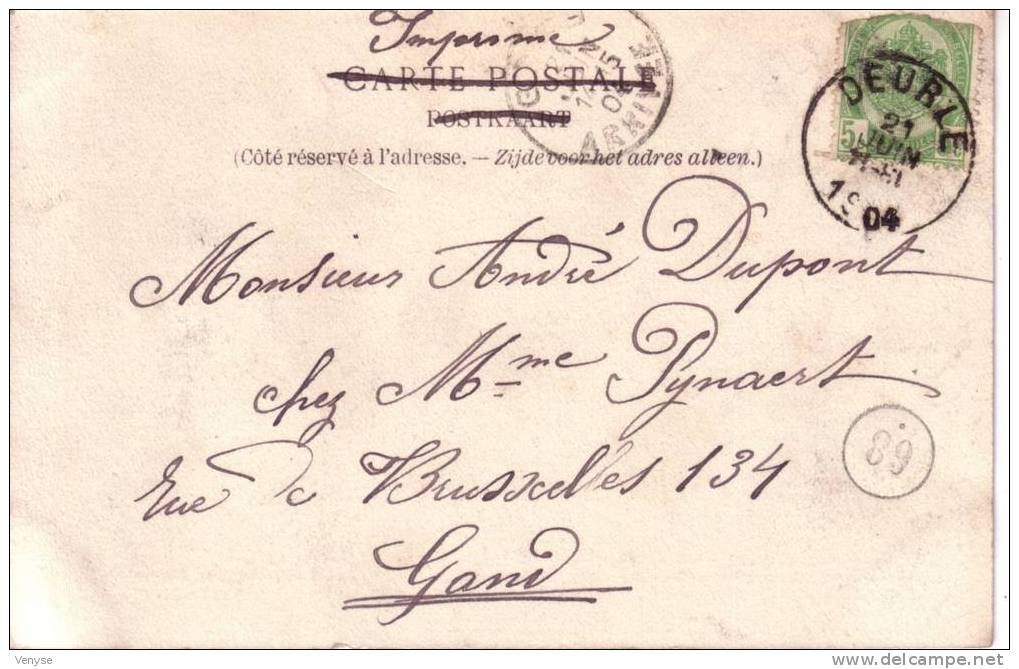 Imprimé
CARTE POSTALE
POSTKAART
(Côté réservé à l'adresse. — Zijde voor het adres alleen.)
DEURLE
21
JUIN
1904
ARRIVÉE
5
Monsieur André Dupont
chez Mme Pynaert
Rue de Bruxelles 134
Gand
89
Venyse
delcampe.net